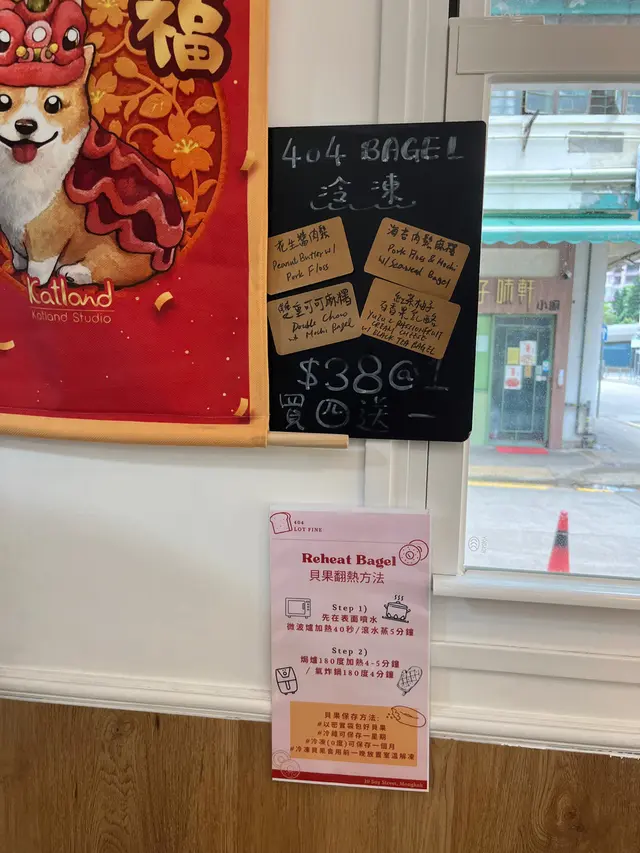 福
Katland
Katland Studio
404 BAGEL
冷凍
花生醬肉鬆
Peanut Butter w/
Pork Floss
海苔肉鬆麻糬
Pork Floss & Mochi
w/ Seaweed Bagel
雙重可可麻糬
Double Choco
w Mochi Bagel
紅茶柚子
百香果乳酪
Yuzu & Passionfruit
Cream Cheese
w/ Black Tea Bagel
$38@1
買四送一
子味軒
小廚
404
LOY FINE
Reheat Bagel
貝果翻熱方法
Step 1)
先在表面噴水
微波爐加熱40秒/滾水蒸5分鐘
Step 2)
焗爐180度加熱4-5分鐘
/ 氣炸鍋180度4分鐘
貝果保存方法:
#以密實袋包好貝果
#冷藏可保存一星期
#冷凍(0度)可保存一個月
#冷凍貝果食用前一晚放置室溫解凍